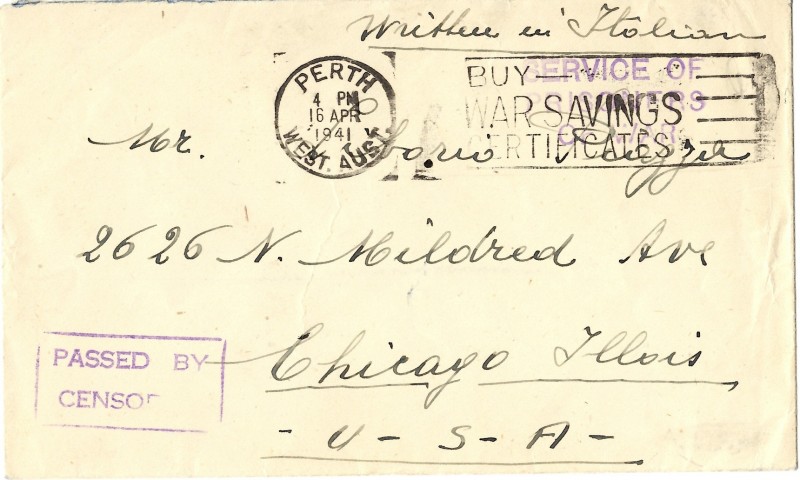 Written in Italian
PERTH
4 PM
16 APR
1941
WEST. AUST.
SERVICE OF
PRISONERS
OF WAR
BUY
WAR SAVINGS
CERTIFICATES
Mr.
2626 N. Mildred Ave
Chicago Illois
- U - S - A -
PASSED BY
CENSOR